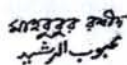 মাহবুবুর রশীদ
محبوب الرشيد